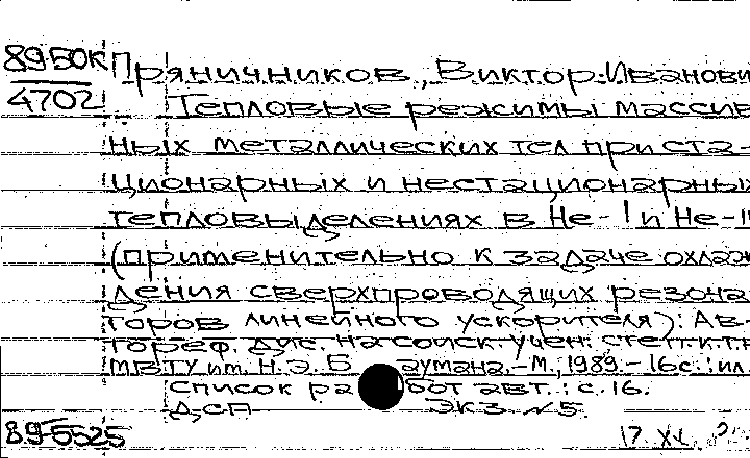 89-50К Пряничников, Виктор Иванови
4702 Тепловые режимы массив
ных металлических тел при ста-
ционарных и нестационарны
тепловыделениях в Не-I и Не-II
(применительно к задаче охлаж
дения сверхпроводящих резона
торов линейного ускорителя): Ав-
тореф. дис. на соиск. учен. степ. к.т.н
МВТУ им. Н.Э. Баумана. - М., 1989. - 16с.: ил
Список работ авт.: с. 16.
ДСП Экз. №5.
89-5525 17 XI.